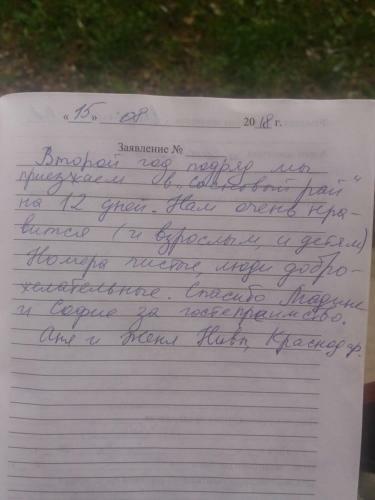 « 15 » 08 2018 г.
Заявление №
Второй год подряд мы
приезжаем в „Сосновый рай“
на 12 дней. Нам очень нра-
вится (и взрослым, и детям)
Номера чистые, люди добро-
желательные. Спасибо Мадине
и Софие за гостеприимство.
Аня и Женя, Краснодар.